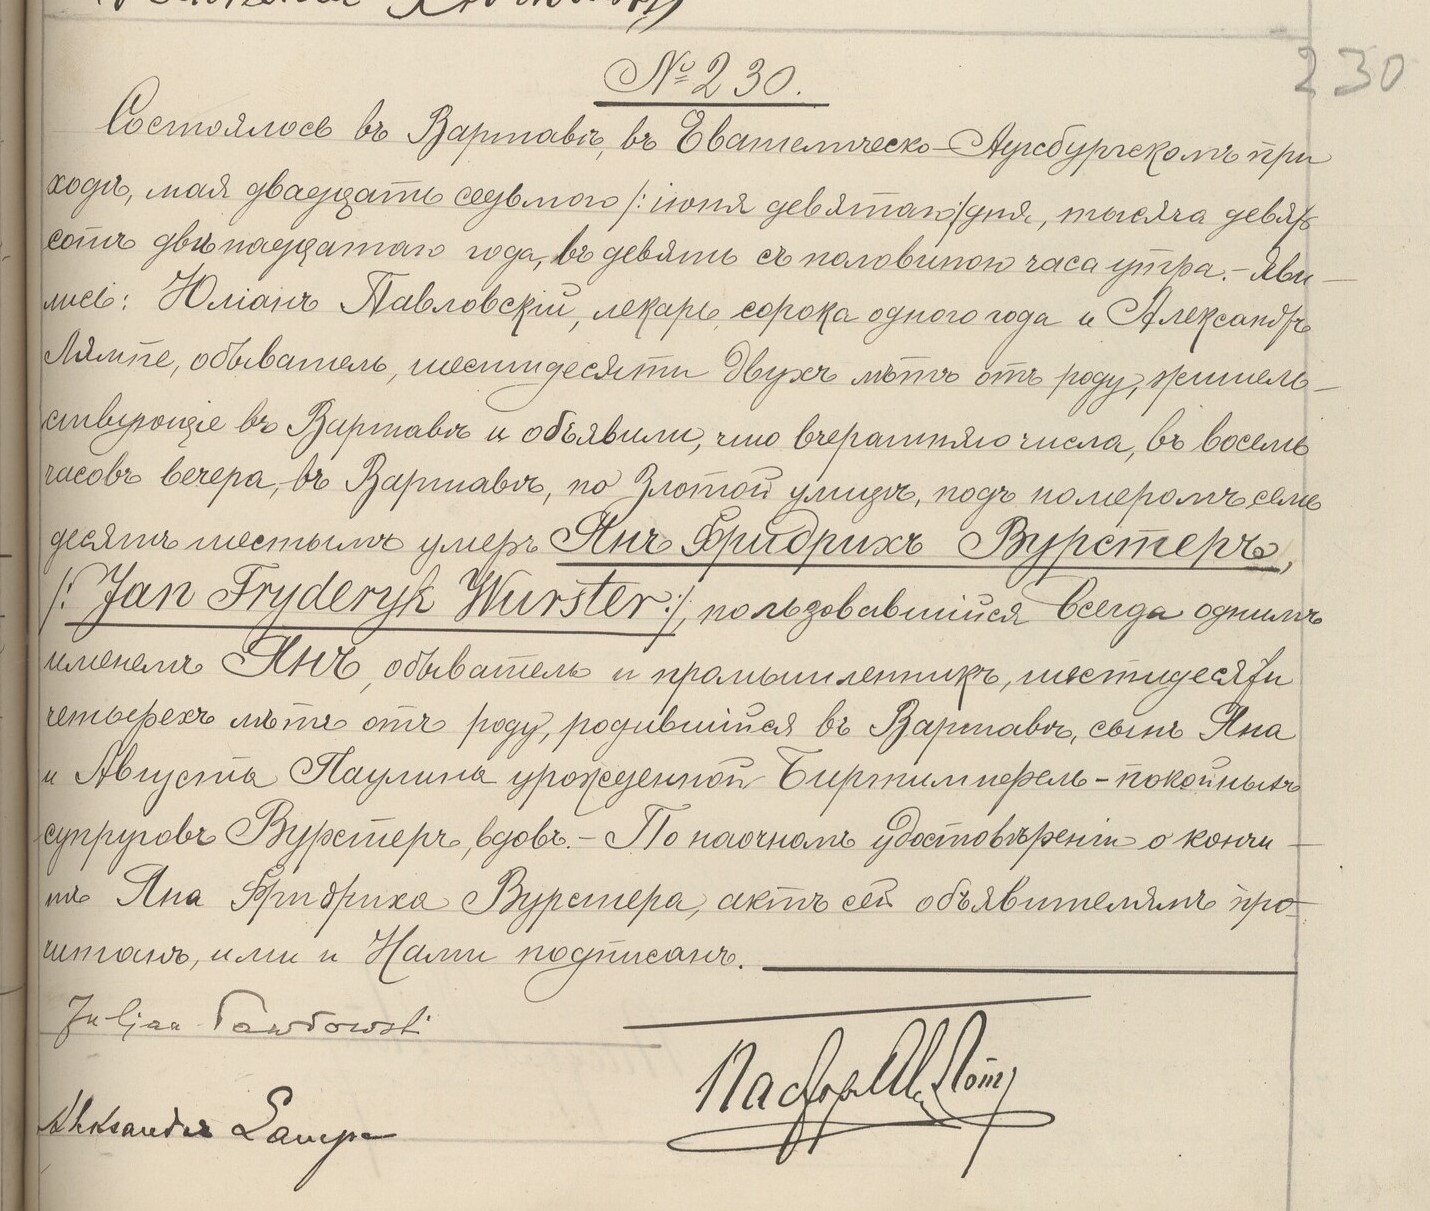 № 230.
230
Состоялось въ Варшавѣ, въ Евангелическо-Аугсбургскомъ при
ходѣ, мая двадцать седьмого /: іюня девятаго :/ дня, тысяча девять
сотъ двѣнадцатаго года, въ девять съ половиною часа утра. – Яви –
лись: Юліанъ Павловскій, лекарь, сорока одного года и Александръ
Лямпе, обыватель, шестидесяти двухъ лѣтъ отъ роду, житель –
ствующіе въ Варшавѣ и объявили, что вчерашняго числа, въ восемь
часовъ вечера, въ Варшавѣ, по Злотой улицѣ, подъ номеромъ семь
десятъ шестымъ умеръ Янъ Фридрихъ Вурстеръ,
/: Jan Fryderyk Wurster :/, пользовавшійся всегда однимъ
именемъ Янъ, обыватель и промышленникъ, шестидесяти
четырехъ лѣтъ отъ роду, родившійся въ Варшавѣ, сынъ Яна
и Августа Паулина урожденной – покойныхъ
супруговъ Вурстеръ, вдовъ. – По наочномъ удостовѣреніи о кончи –
нѣ Яна Фридриха Вурстера, актъ сей объявителямъ про –
читанъ, ими и Нами подписанъ.
Juljan Pawłowski
Aleksander Lampe